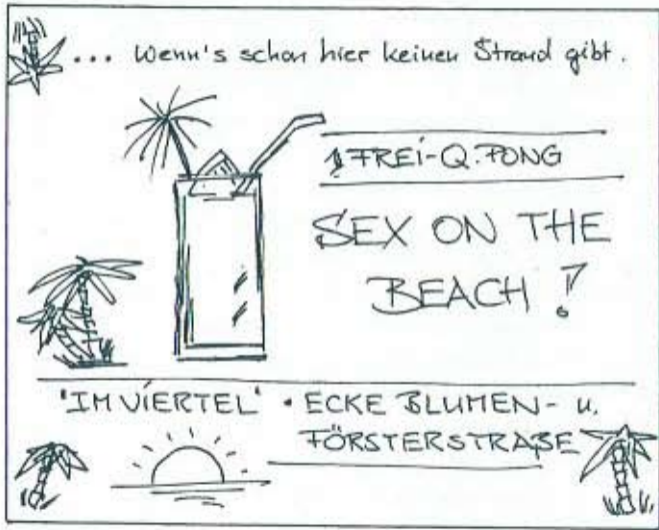 ... wenn's schon hier keinen Strand gibt.
1 FREI-Q-PONG
SEX ON THE
BEACH!
"IM VIERTEL" • ECKE BLUMEN- u.
FÖRSTERSTRAßE